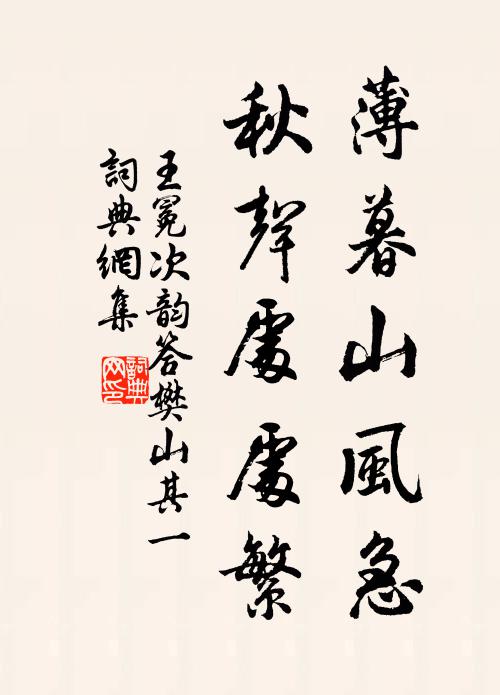 薄暮山風急
秋聲處處繁
王冕次韵答樊山其一
詞典網集
詞典網印